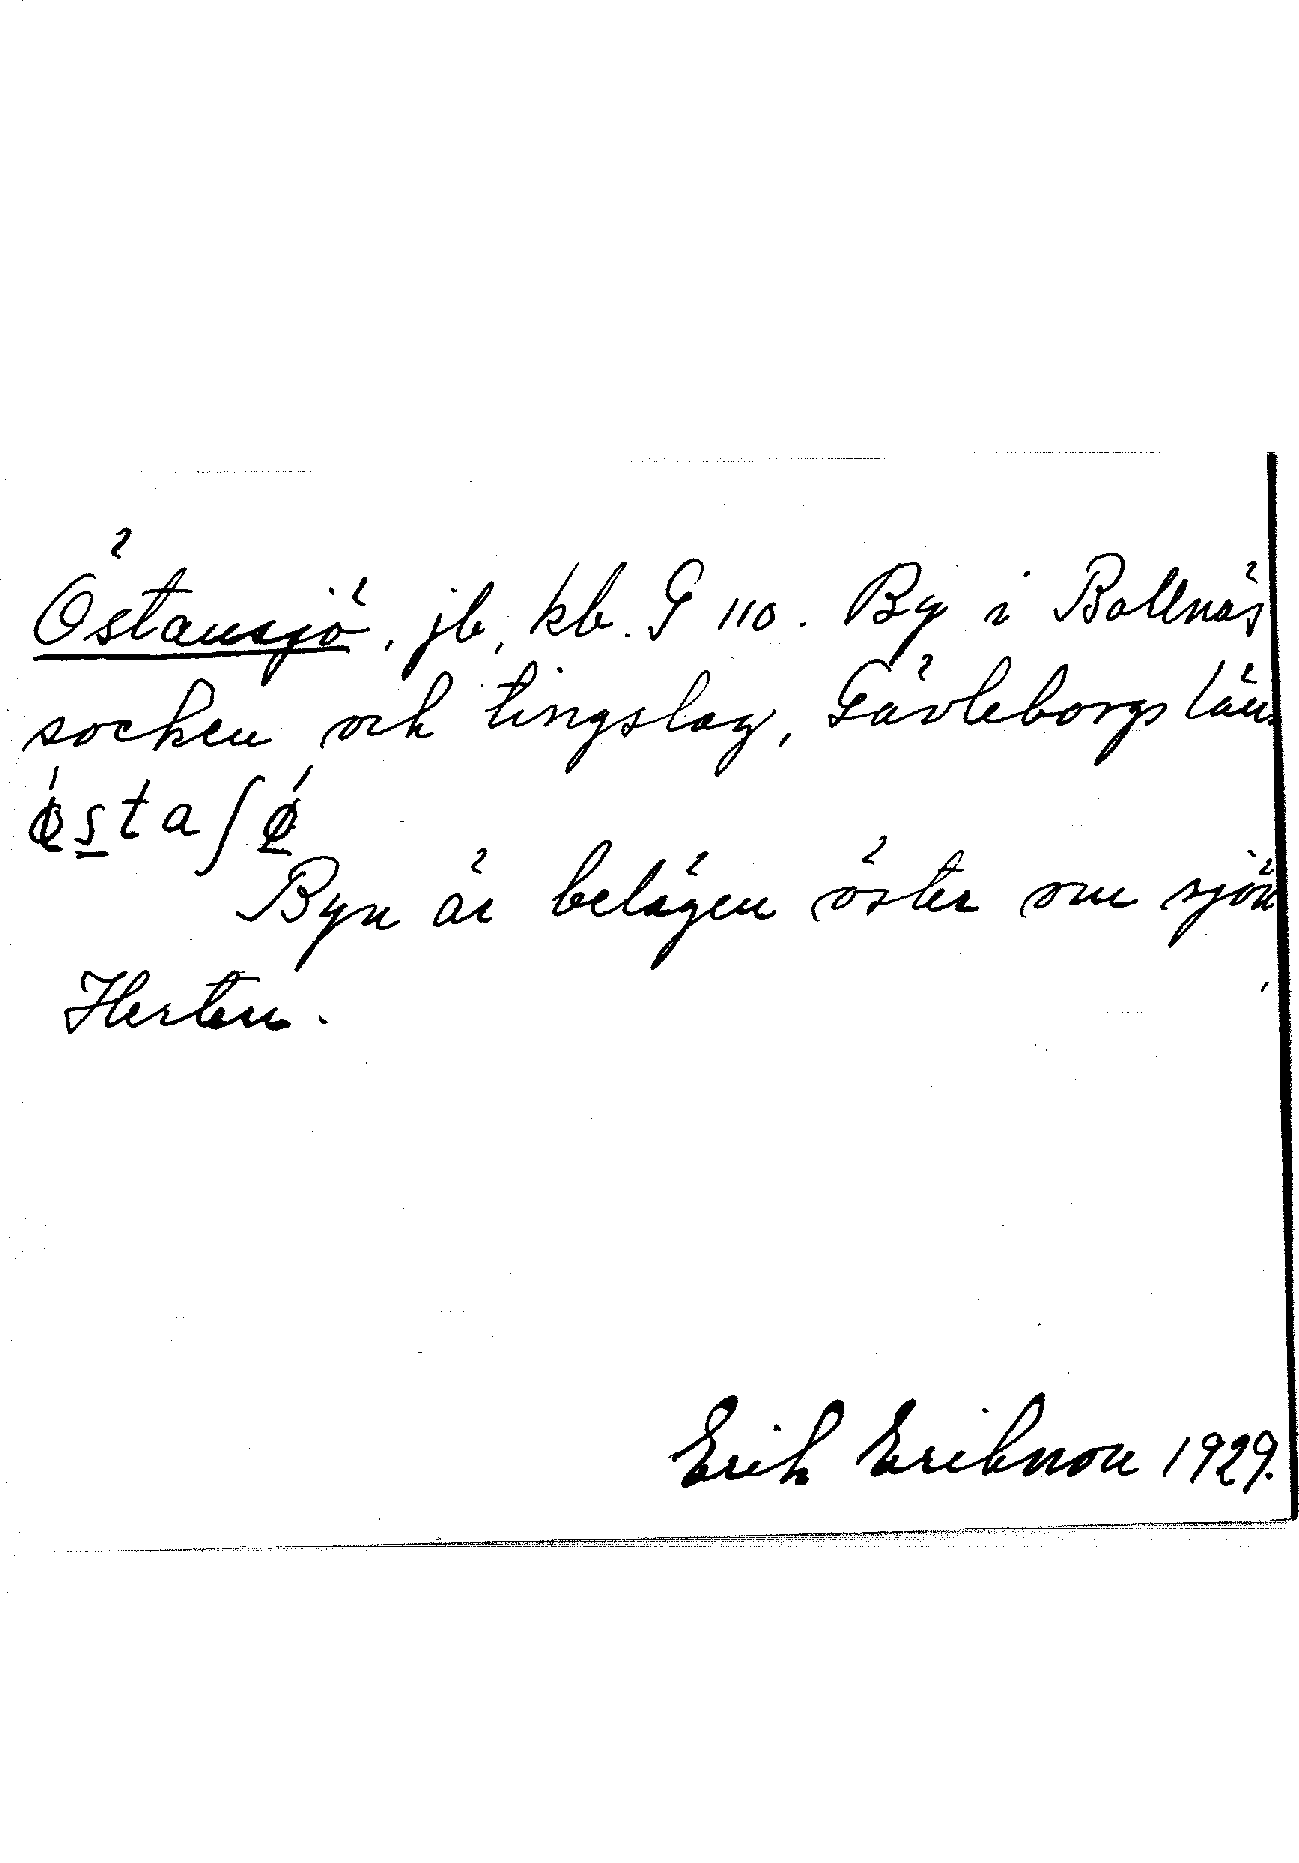 Östansjö, jb, kb. G 110. By i Bollnäs
socken och tingslag, Gävleborgs län.
Byn är belägen öster om sjön
Herten.
Erik Eriksson 1929.